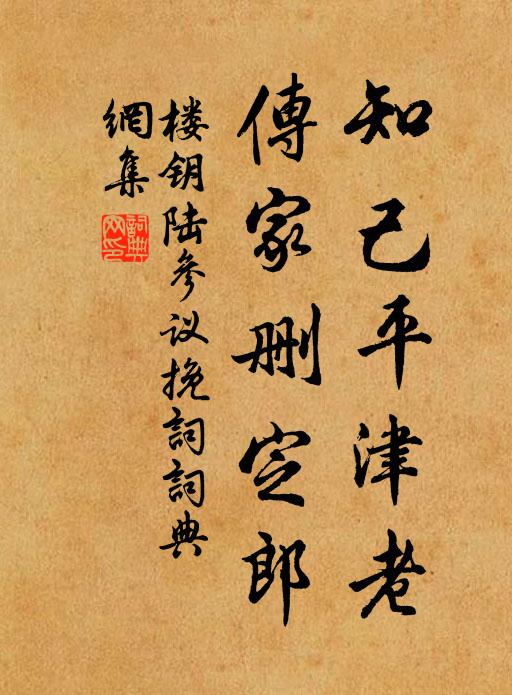 知己平津老
傳家删定郎
楼钥陆參议挽詞詞典
網集
詞典网印